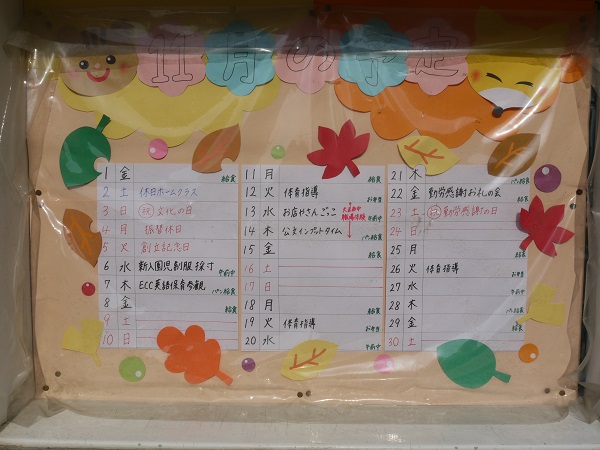 11月の予定
1 金 給食
2 土 休日ホームクラス
3 日 ㊗文化の日
4 月 振替休日
5 火 創立記念日
6 水 新入園児制服採寸 午前中
7 木 ECC英語保育参観 パン給食
8 金 給食
9 土
10 日
11 月 給食
12 火 体育指導 お弁当
13 水 お店やさんごっこ 午前中
14 木 公文インプットタイム パン給食
15 金 給食
16 土
17 日
18 月 給食
19 火 体育指導 お弁当
20 水 午前中
21 木 パン給食
22 金 勤労感謝お礼の会 給食
23 土 ㊗勤労感謝の日
24 日
25 月 給食
26 火 体育指導 お弁当
27 水 午前中
28 木 パン給食
29 金 給食
30 土